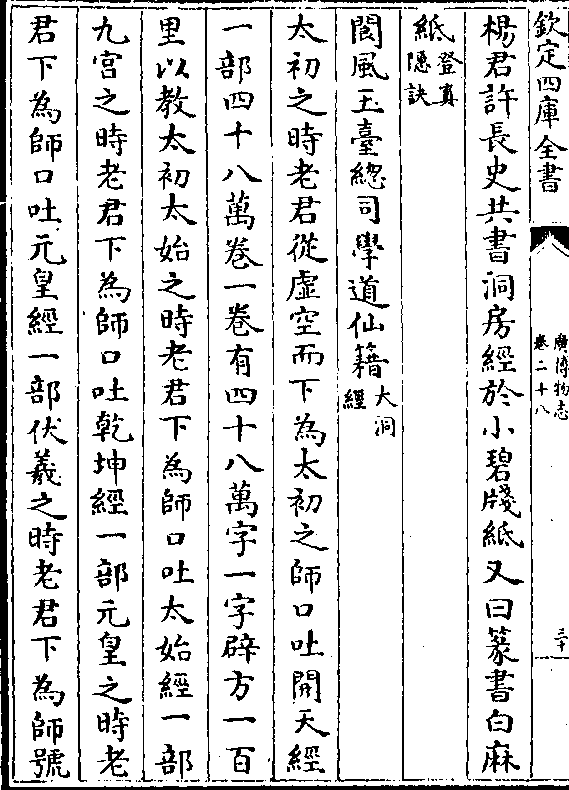 欽定四庫全書
廣博物志
卷二十八
三十
楊君許長史共書洞房經於小碧牋紙又曰篆書白麻
紙登真隠訣
閬風玉臺總司學道仙籍大洞經
太初之時老君從虛空而下為太初之師口吐開天經
一部四十八萬卷一卷有四十八萬字一字辟方一百
里以教太初太始之時老君下為師口吐太始經一部
九宮之時老君下為師口吐乾坤經一部元皇之時老
君下為師口吐元皇經一部伏羲之時老君下為師號